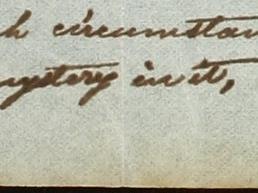 h circumstan
mystery in it,